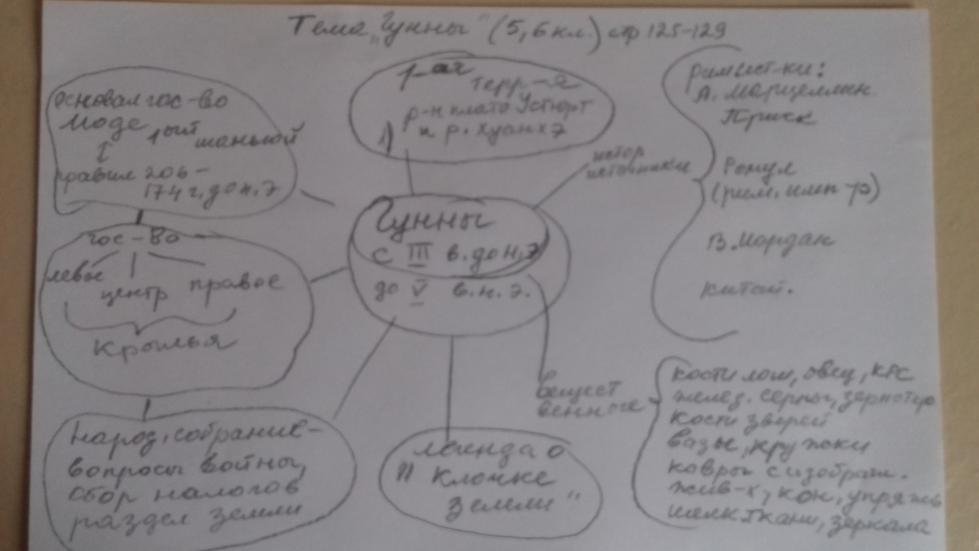 Тема „Гунны" (5,6 кл.) стр 125-129
основал гос-во
Моде
1ый шаньюй
правил 206-
174 г. до н. э
терр-я
р-н плато Устюрт
и р. Хуанхэ
1)
истор
источники
римист-ки:
А. Марцеллин
Приск
Ромул
(рим. имп-р)
В. Мордан
китай.
Гунны
с III в. до н. э
до V в. н. э.
гос-во
левое
центр
правое
Крылья
народ. собрание-
вопросы войны,
сбор налогов
раздел земли
легенда о
"Клочке
земли"
вещест
венные
кости лош, овец, КРС
желез. серпы, зернотер
кости зверей
вазы, кружки
ковры с изображ.
жив-х, кон. упряжь
шелк ткани, зеркала